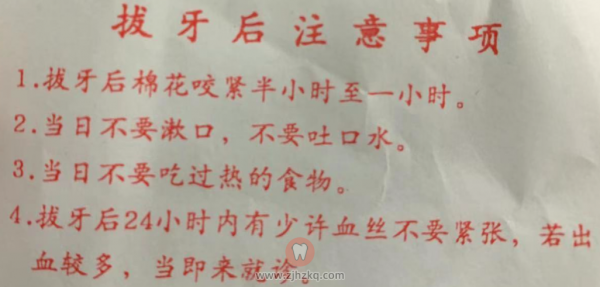 拔牙后注意事项
1.拔牙后棉花咬紧半小时至一小时。
2.当日不要漱口，不要吐口水。
3.当日不要吃过热的食物。
4.拔牙后24小时内有少许血丝不要紧张，若出
血较多，当即来就诊。
www.zjhzkq.com